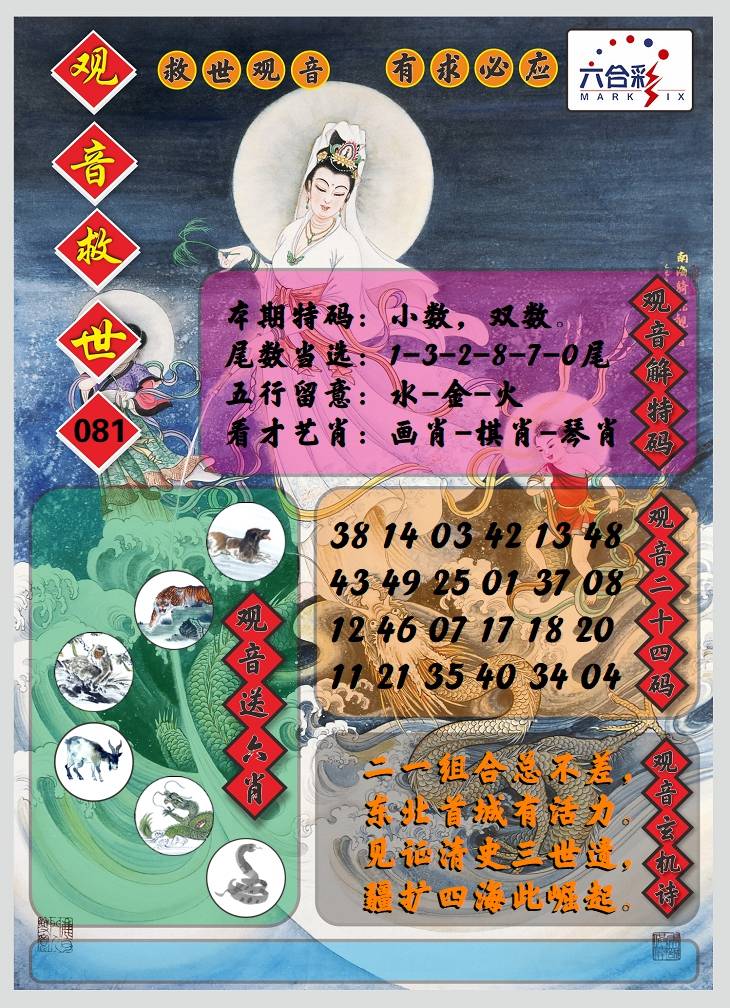 救世观音 有求必应
六合彩
MARK SIX
观音救世
081
南海
观音解特码
本期特码：小数，双数。
尾数当选：1-3-2-8-7-0尾
五行留意：水-金-火
看才艺肖：画肖-棋肖-琴肖
观音二十四码
38 14 03 42 13 48
43 49 25 01 37 08
12 46 07 17 18 20
11 21 35 40 34 04
观音送六肖
观音玄机诗
二一组合总不差，
东北首城有活力。
见证清史三世遗，
疆扩四海此崛起。